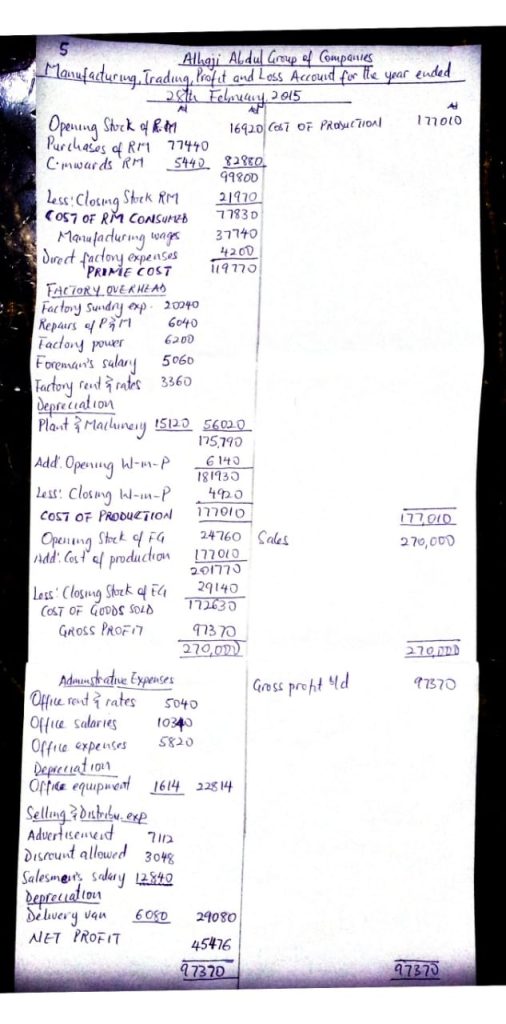 5
Alhaji Abdul Group of Companies
Manufacturing, Trading, Profit and Loss Account for the year ended
28th February, 2015
₦ ₦ ₦
Opening Stock of R.M 16920 COST OF PRODUCTION 177010
Purchases of RM 77440
C. inwards RM 5440 82880
99800
Less: Closing Stock RM 21970
COST OF RM CONSUMED 77830
Manufacturing wages 37740
Direct factory expenses 4200
PRIME COST 119770
FACTORY OVERHEAD
Factory Sundry exp. 20240
Repairs of P & M 6040
Factory power 6200
Foreman's salary 5060
Factory rent & rates 3360
Depreciation
Plant & Machinery 15120 56020
175,790
Add: Opening W-in-P 6140
181930
Less: Closing W-in-P 4920
COST OF PRODUCTION 177010 177,010
Opening Stock of FG 24760 Sales 270,000
Add: Cost of production 177010
201770
Less: Closing Stock of FG 29140
COST OF GOODS SOLD 172630
GROSS PROFIT 97370
270,000 270,000
Administrative Expenses Gross profit b/d 97370
Office rent & rates 5040
Office salaries 10340
Office expenses 5820
Depreciation
Office equipment 1614 22814
Selling & Distribu. exp
Advertisement 7112
Discount allowed 3048
Salesmen's salary 12840
Depreciation
Delivery van 6080 29080
NET PROFIT 45476
97370 97370